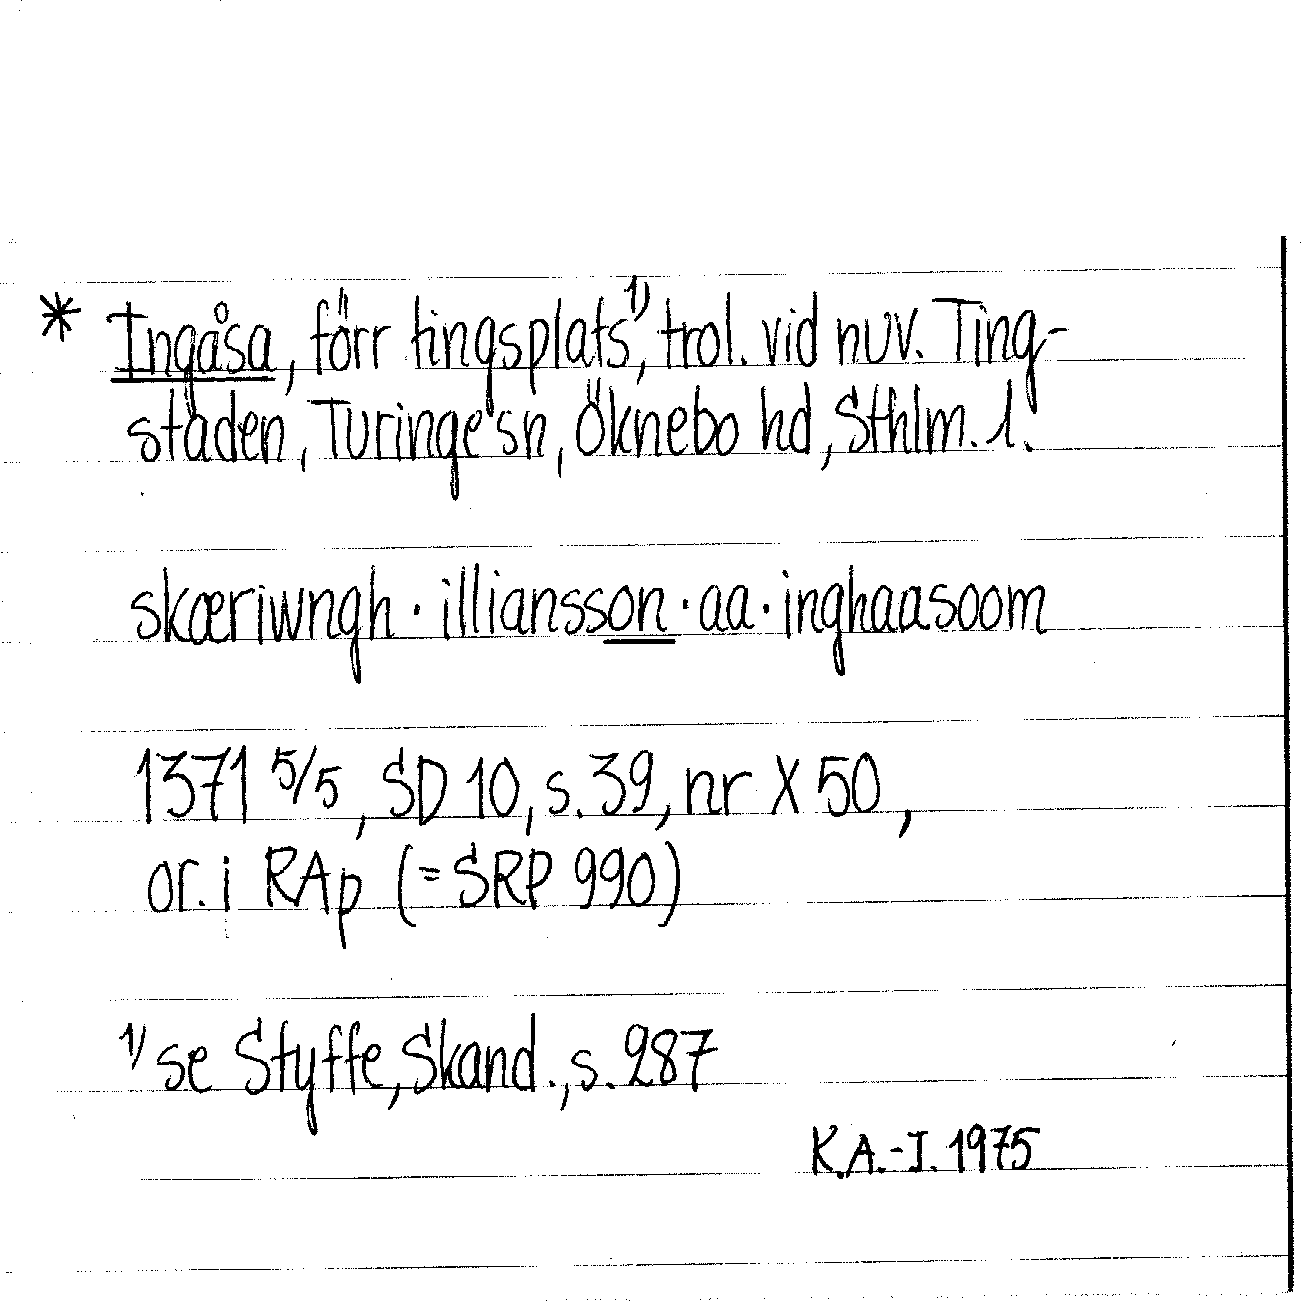 * Ingåsa, förr tingsplats¹⁾, trol. vid nuv. Ting-
staden, Turinge sn, Öknebo hd, Sthlm. l.
skæriwngh · illiansson · aa · inghaasoom
1371 5/5, SD 10, s. 39, nr X 50,
or. i RAp (= SRP 990)
¹⁾ se Styffe, Skand., s. 287
K.A.-I. 1975